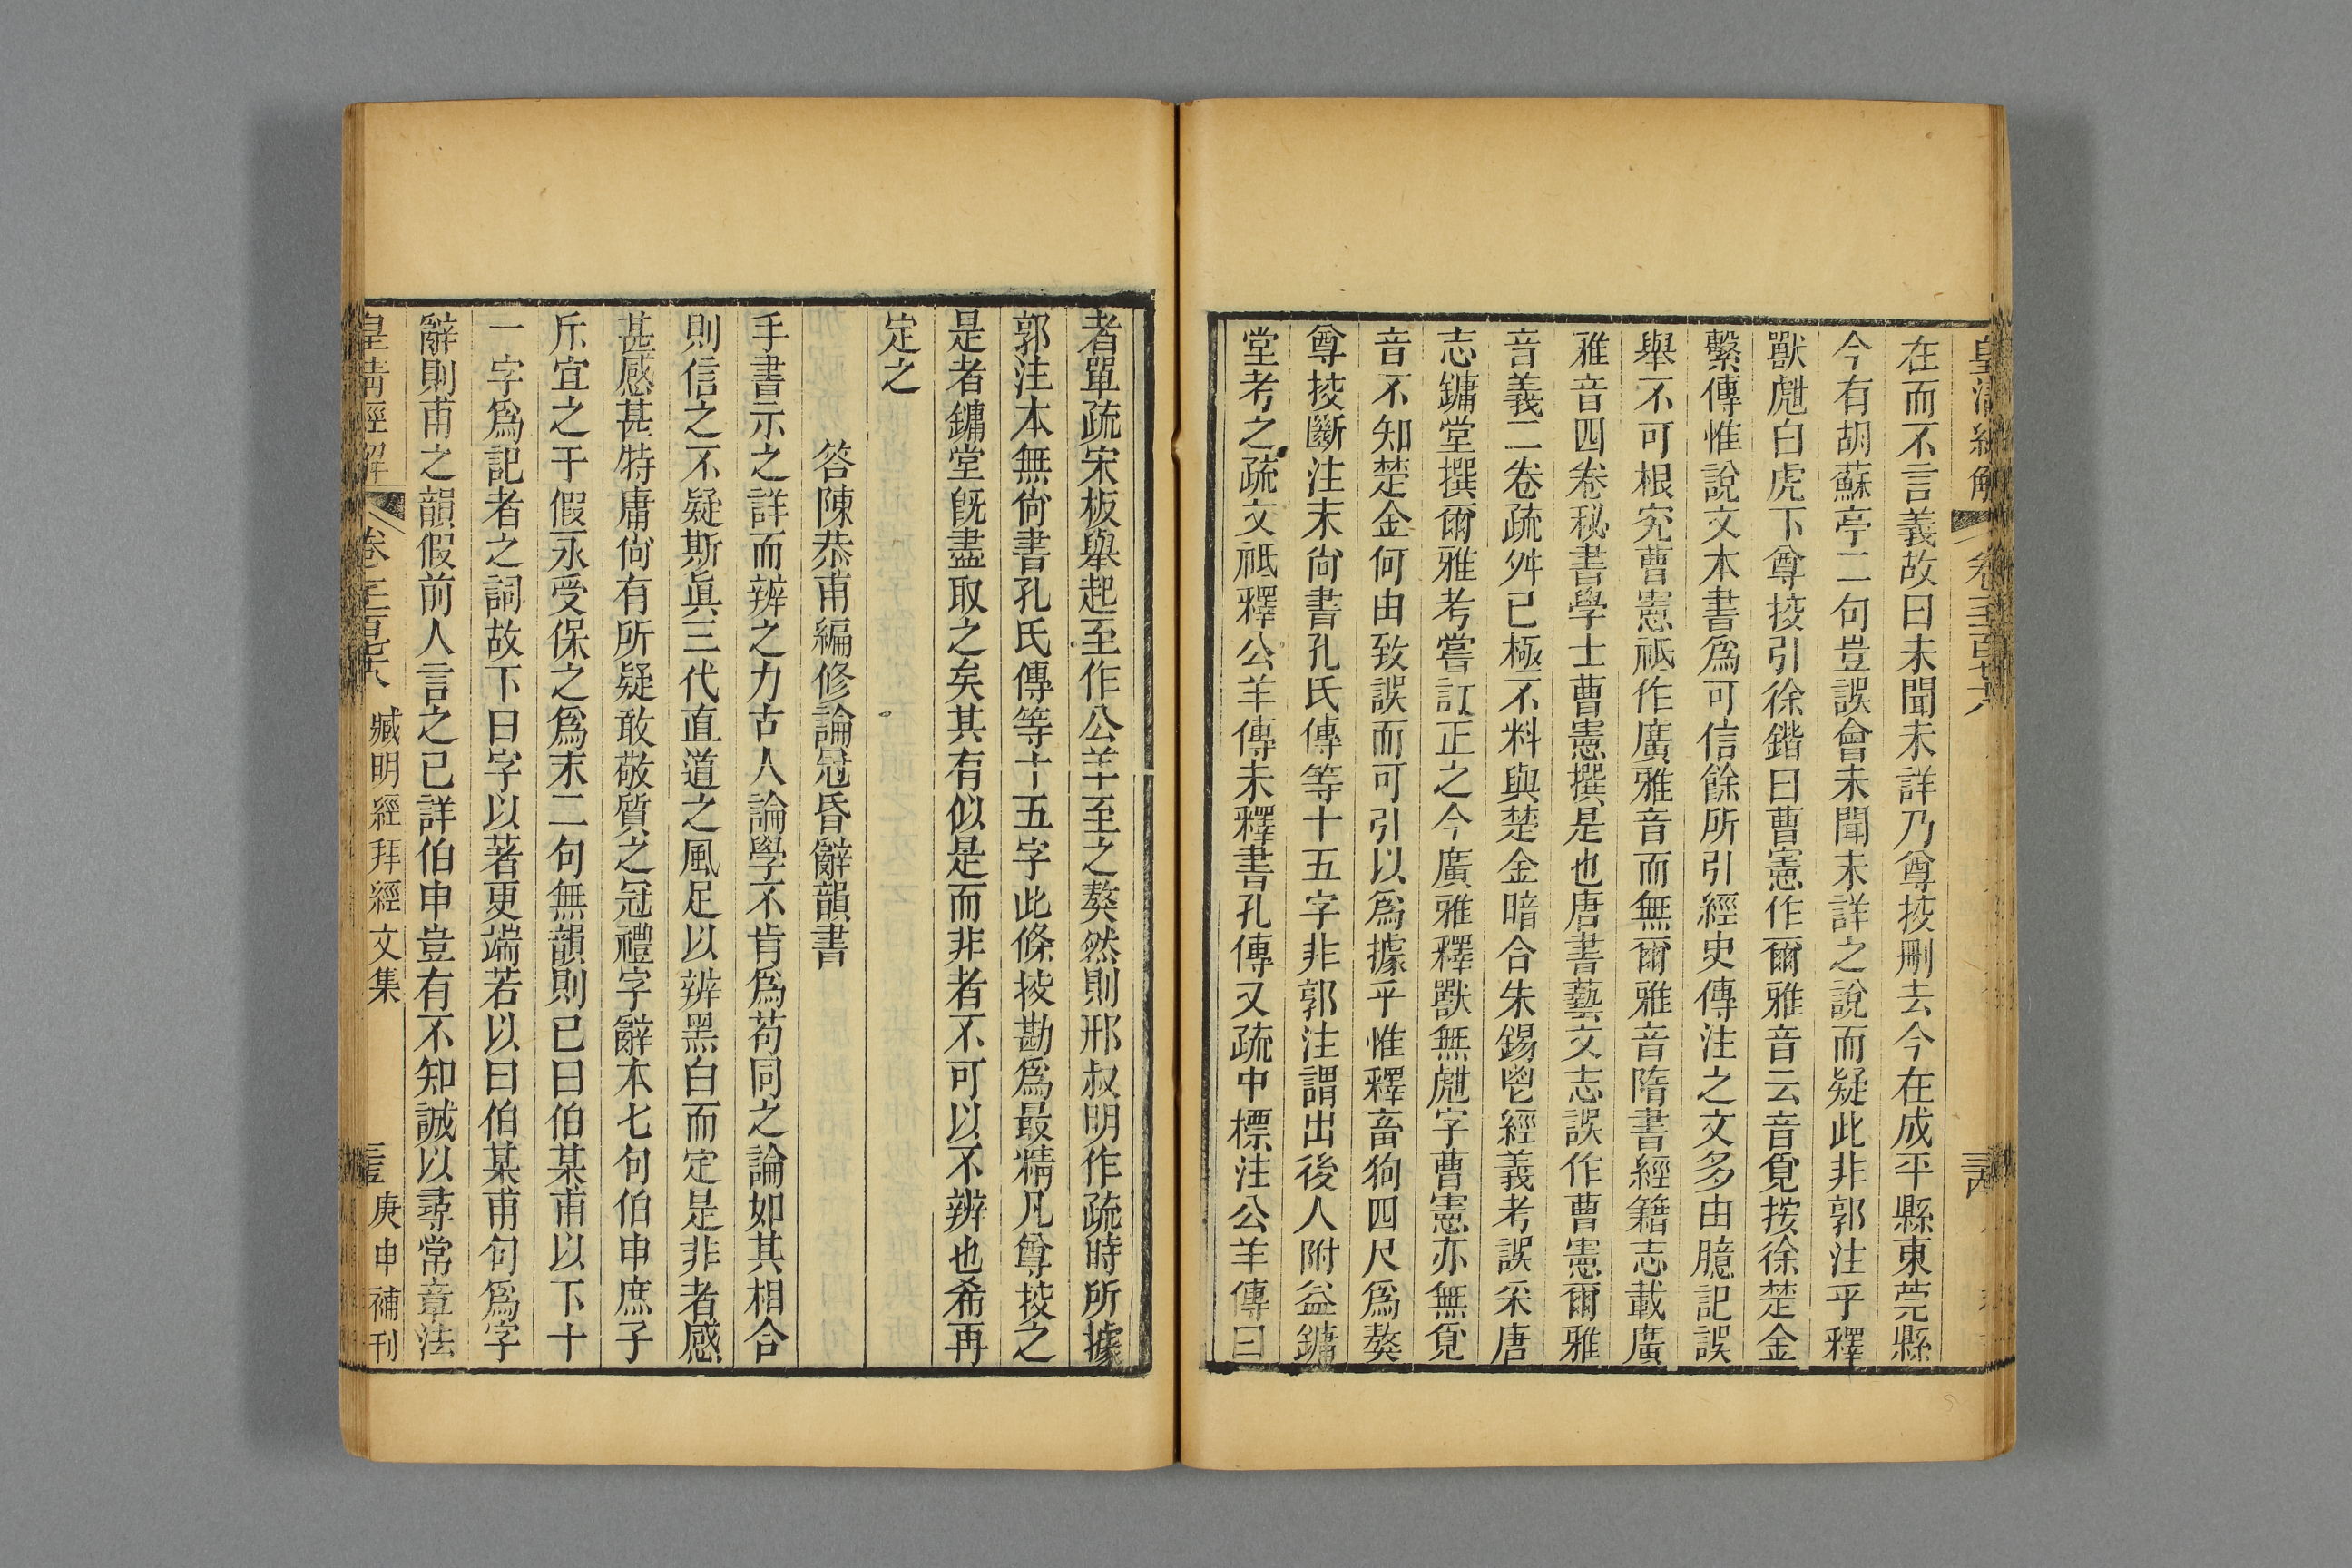 皇清經解
卷一千一百七十八
在而不言義故曰未聞未詳乃尊挍刪去今在成平縣東莞縣
今有胡蘇亭二句豈誤會未聞未詳之說而疑此非郭注乎釋
獸虪白虎下尊挍引徐鍇曰曹憲作爾雅音云音覓按徐楚金
繫傳惟說文本書爲可信餘所引經史傳注之文多由臆記誤
舉不可根究曹憲祗作廣雅音而無爾雅音隋書經籍志載廣
雅音四卷秘書學士曹憲撰是也唐書藝文志誤作曹憲爾雅
音義二卷疏舛已極不料與楚金暗合朱錫鬯經義考誤采唐
志鏞堂撰爾雅考嘗訂正之今廣雅釋獸無虪字曹憲亦無覓
音不知楚金何由致誤而可引以爲據乎惟釋畜狗四尺爲獒
尊挍斷注末尙書孔氏傳等十五字非郭注謂出後人附益鏞
堂考之疏文祗釋公羊傳未釋書孔傳又疏中標注公羊傳曰
者單疏宋板舉起至作公羊至之獒然則邢叔明作疏時所據
郭注本無尙書孔氏傳等十五字此條挍勘爲最精凡尊挍之
是者鏞堂旣盡取之矣其有似是而非者不可以不辨也希再
定之
答陳恭甫編修論冠昏辭韻書
手書示之詳而辨之力古人論學不肯爲苟同之論如其相合
則信之不疑斯眞三代直道之風足以辨黑白而定是非者感
甚感甚特庸尙有所疑敢敬質之冠禮字辭本七句伯申庶子
斥宜之于假永受保之爲末二句無韻則已曰伯某甫以下十
一字爲記者之詞故下曰字以著更端若以曰伯某甫句爲字
辭則甫之韻假前人言之已詳伯申豈有不知誠以尋常章法
皇清經解
臧明經拜經文集
庚申補刊